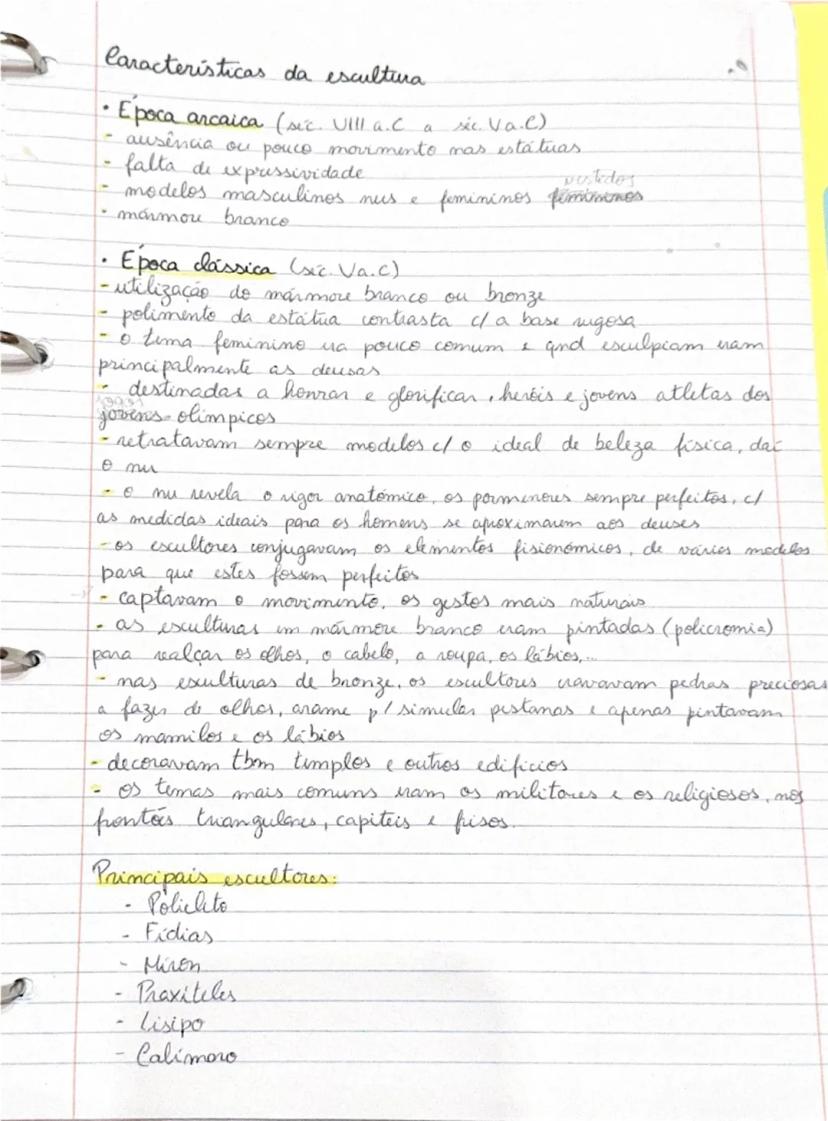 Características da escultura
• Época arcaica (séc. VIII a.C a séc. V a.C)
- ausência ou pouco movimento nas estátuas
- falta de expressividade
vestidos
- modelos masculinos nus e femininos femininos
- mármore branco
• Época clássica (séc. V a.C)
- utilização do mármore branco ou bronze
- polimento da estátua contrasta c/ a base rugosa
- o tema feminino era pouco comum e qnd esculpiam eram
principalmente as deusas
- destinadas a honrar e glorificar, heróis e jovens atletas dos
jogos
jovens olímpicos
- retratavam sempre modelos c/ o ideal de beleza física, daí
o nu
- o nu revela o rigor anatómico, os pormenores sempre perfeitos, c/
as medidas ideais para os homens se aproximarem aos deuses
- os escultores conjugavam os elementos fisionómicos, de vários modelos
para que estes fossem perfeitos
- captavam o movimento, os gestos mais naturais
- as esculturas em mármore branco eram pintadas (policromia)
para realçar os olhos, o cabelo, a roupa, os lábios,...
- nas esculturas de bronze, os escultores cravavam pedras preciosas
a fazer de olhos, arame p/ simular pestanas e apenas pintavam
os mamilos e os lábios
- decoravam tbm templos e outros edifícios
- os temas mais comuns eram os militares e os religiosos, nos
frontões triangulares, capiteis e frisos.
Principais escultores:
- Policleto
- Fídias
- Míron
- Praxíteles
- Lisipo
- Calímaro